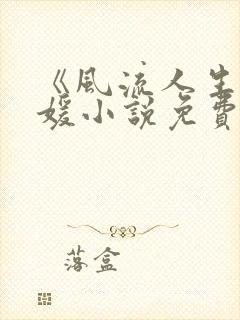 《風流人生
媛小說免費
落盒